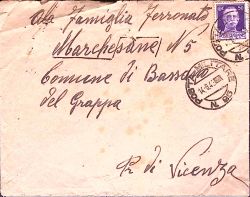 Alla Famiglia Ferronato
Marchesane N 5
Comune di Bassano
del Grappa
Pr di Vicenza
POSTA MILITARE